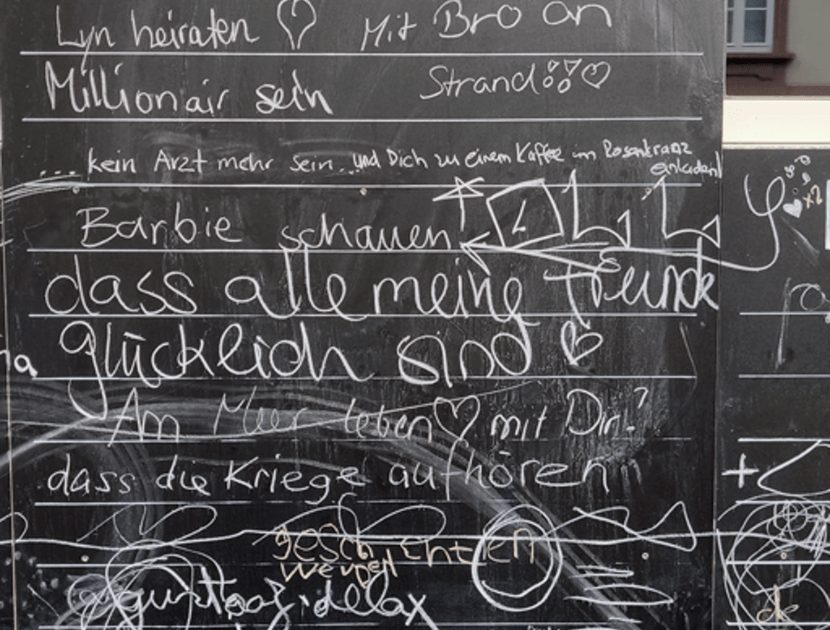 Lyn heiraten Mit Bro an
Millionair sein Strand
... kein Arzt mehr sein...und Dich zu einem Kaffee im Rosenkranz
einladen!
Barbie schauen!
dass alle meine freunde
glücklich sind
Am Meer leben mit Dir?
dass die Kriege aufhören